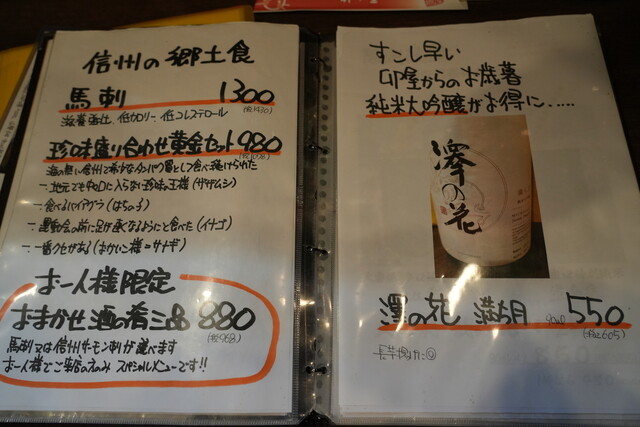 信州の郷土食
馬刺 1300
(税1430)
滋養強壮 低カロリー 低コレステロール
珍味盛り合わせ黄金セット 980
海の無い信州で希少なタンパク質として食べ続けられた
一. 地元でも中々口に入らない珍味の王様(ザザムシ)
一. 食べるバイアグラ(はちの子)
一. 運動会の前に足が速くなるようにと食べた(イナゴ)
一. 一番クセがある(おかいこ様=サナギ)
お一人様限定
おまかせ酒の肴三品 880
(税968)
馬刺又は信州サーモン刺が選べます
お一人様でご来店のみ スペシャルメニューです!!
すこし早い
卯屋からのお歳暮
純米大吟醸がお得に.....
澤の花
澤の花 満ち月 90ml 550
(税込605)